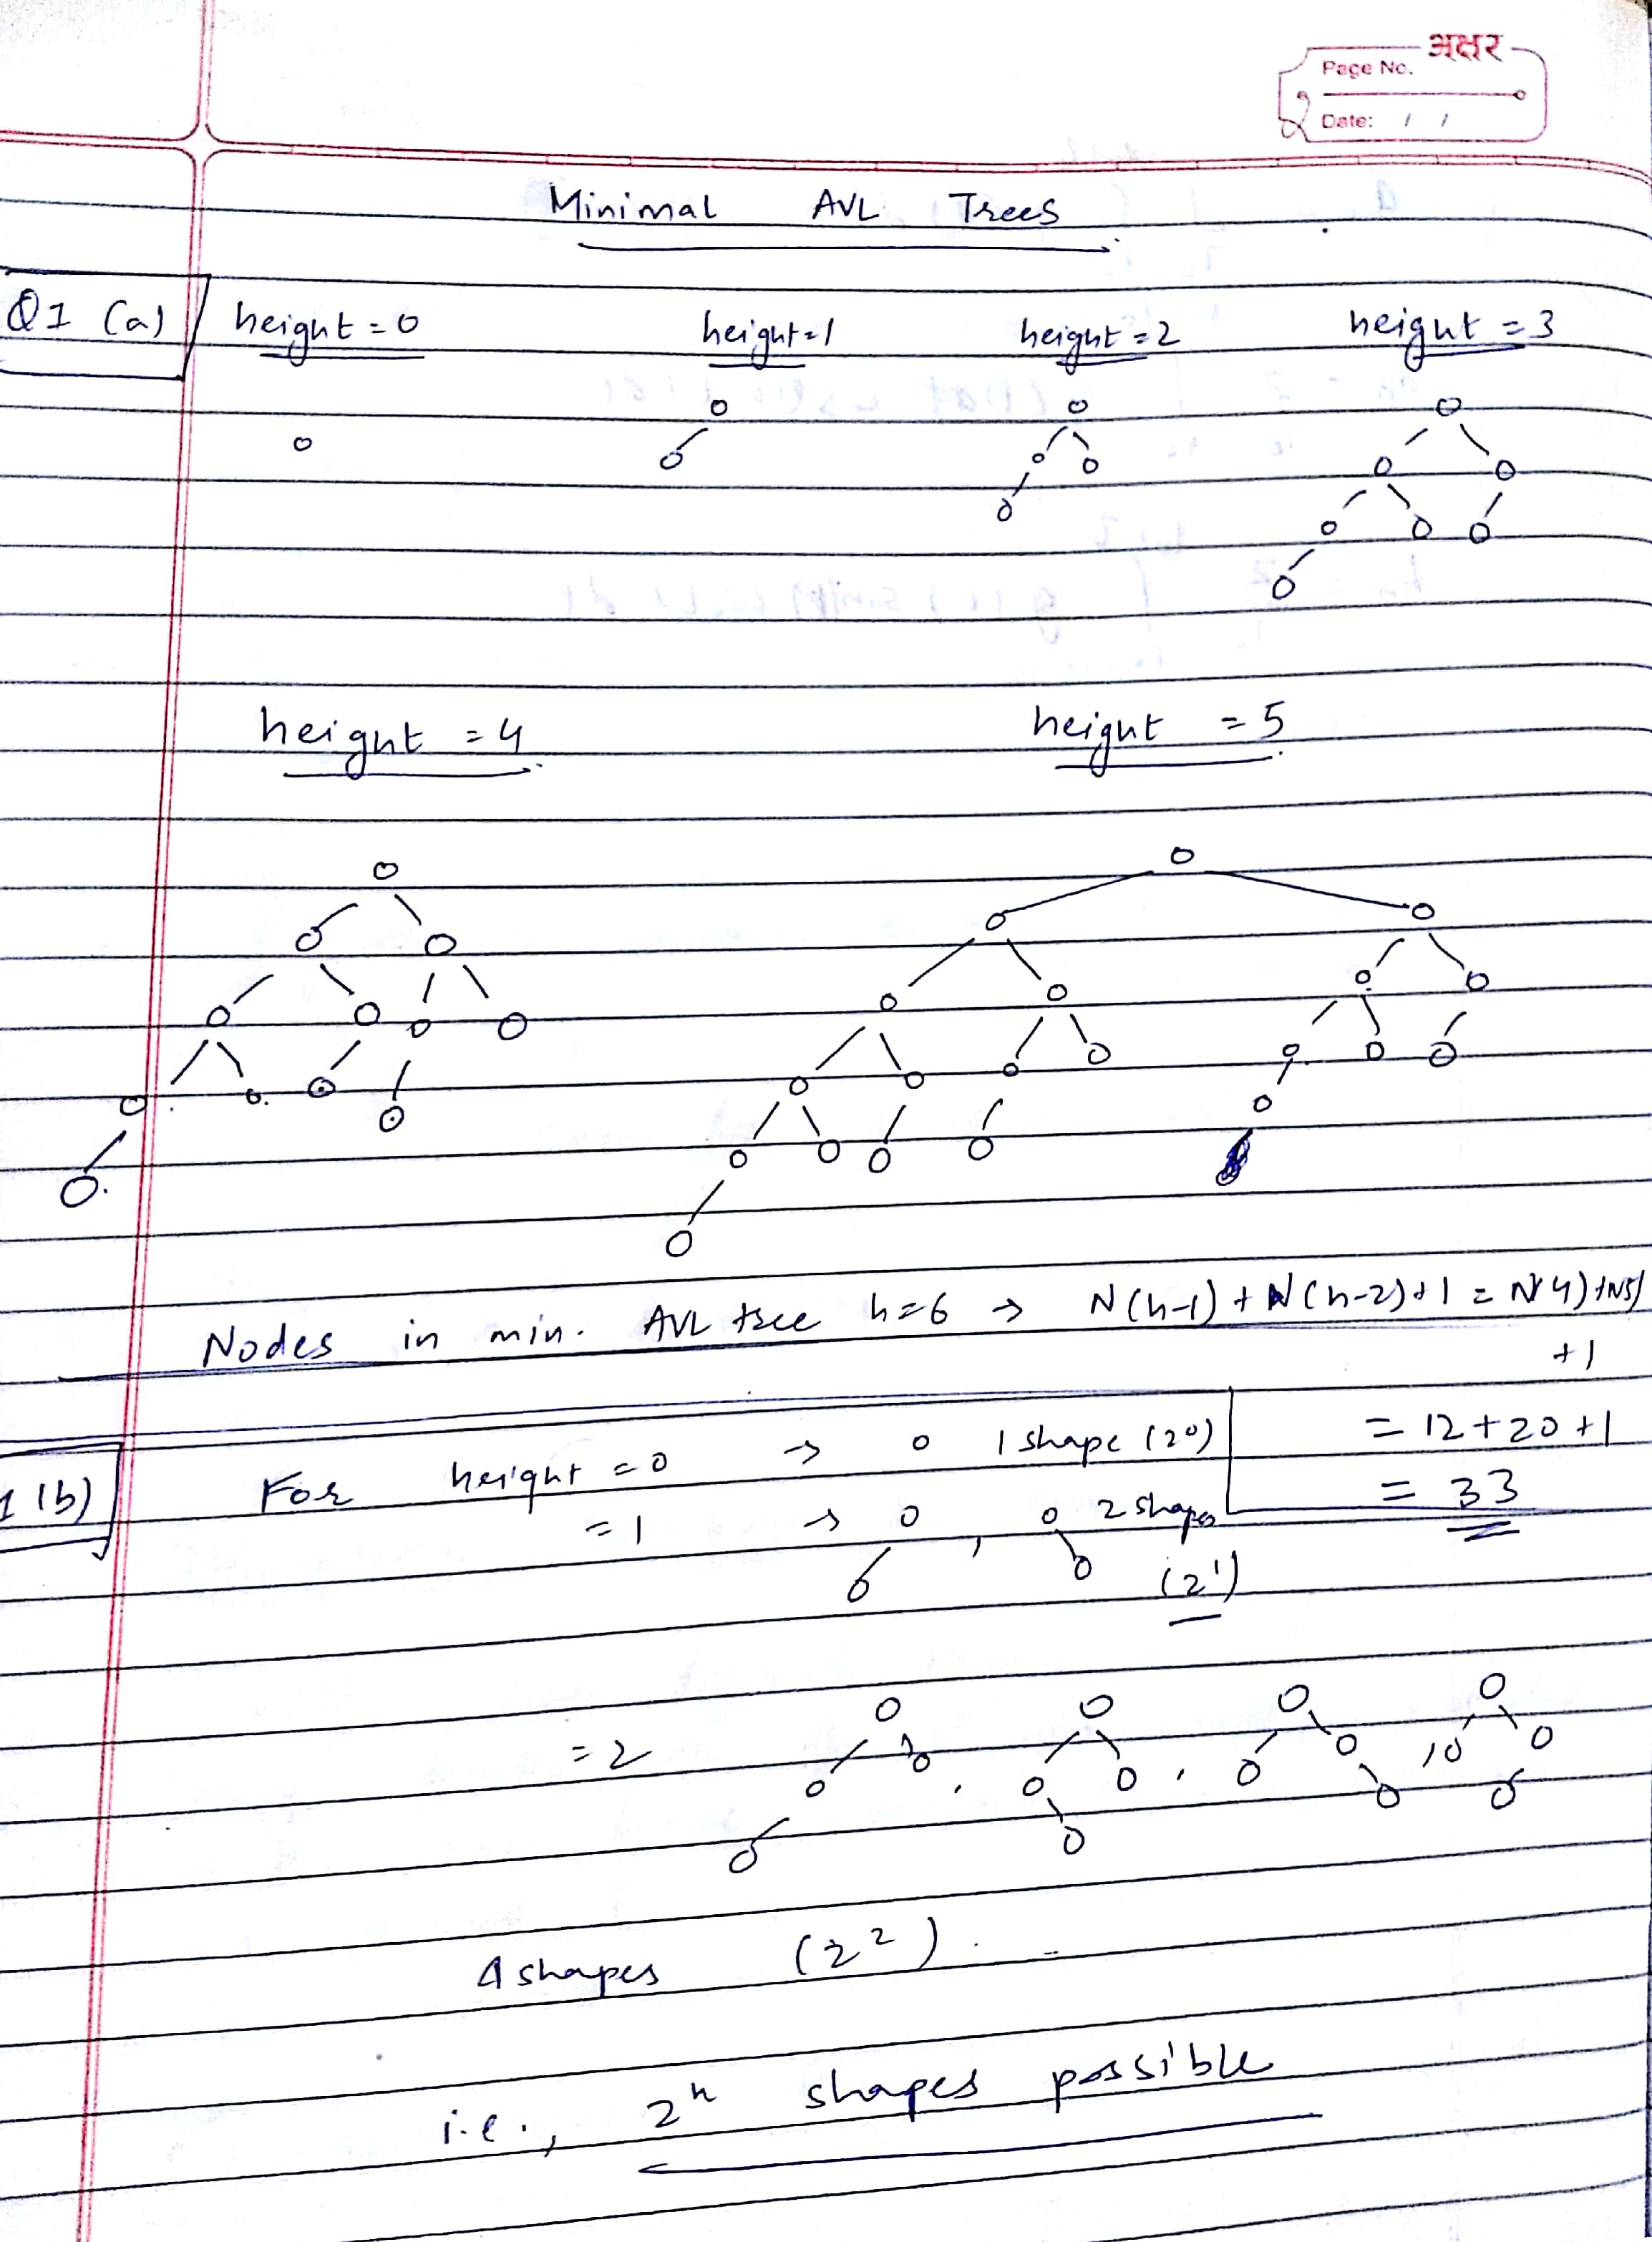 अक्षर
Page No.
Date: / /
Minimal AVL Trees
Q1 (a) height = 0 height = 1 height = 2 height = 3
height = 4 height = 5
Nodes in min. AVL tree h=6 → N(h-1) + N(h-2) + 1 = N(4) + N(5)
+1
= 12 + 20 + 1
= 33
1 (b) For height = 0 → 1 shape (2⁰)
= 1 → , 2 shapes
(2¹)
= 2 , , ,
4 shapes (2²).
i.e., 2ʰ shapes possible